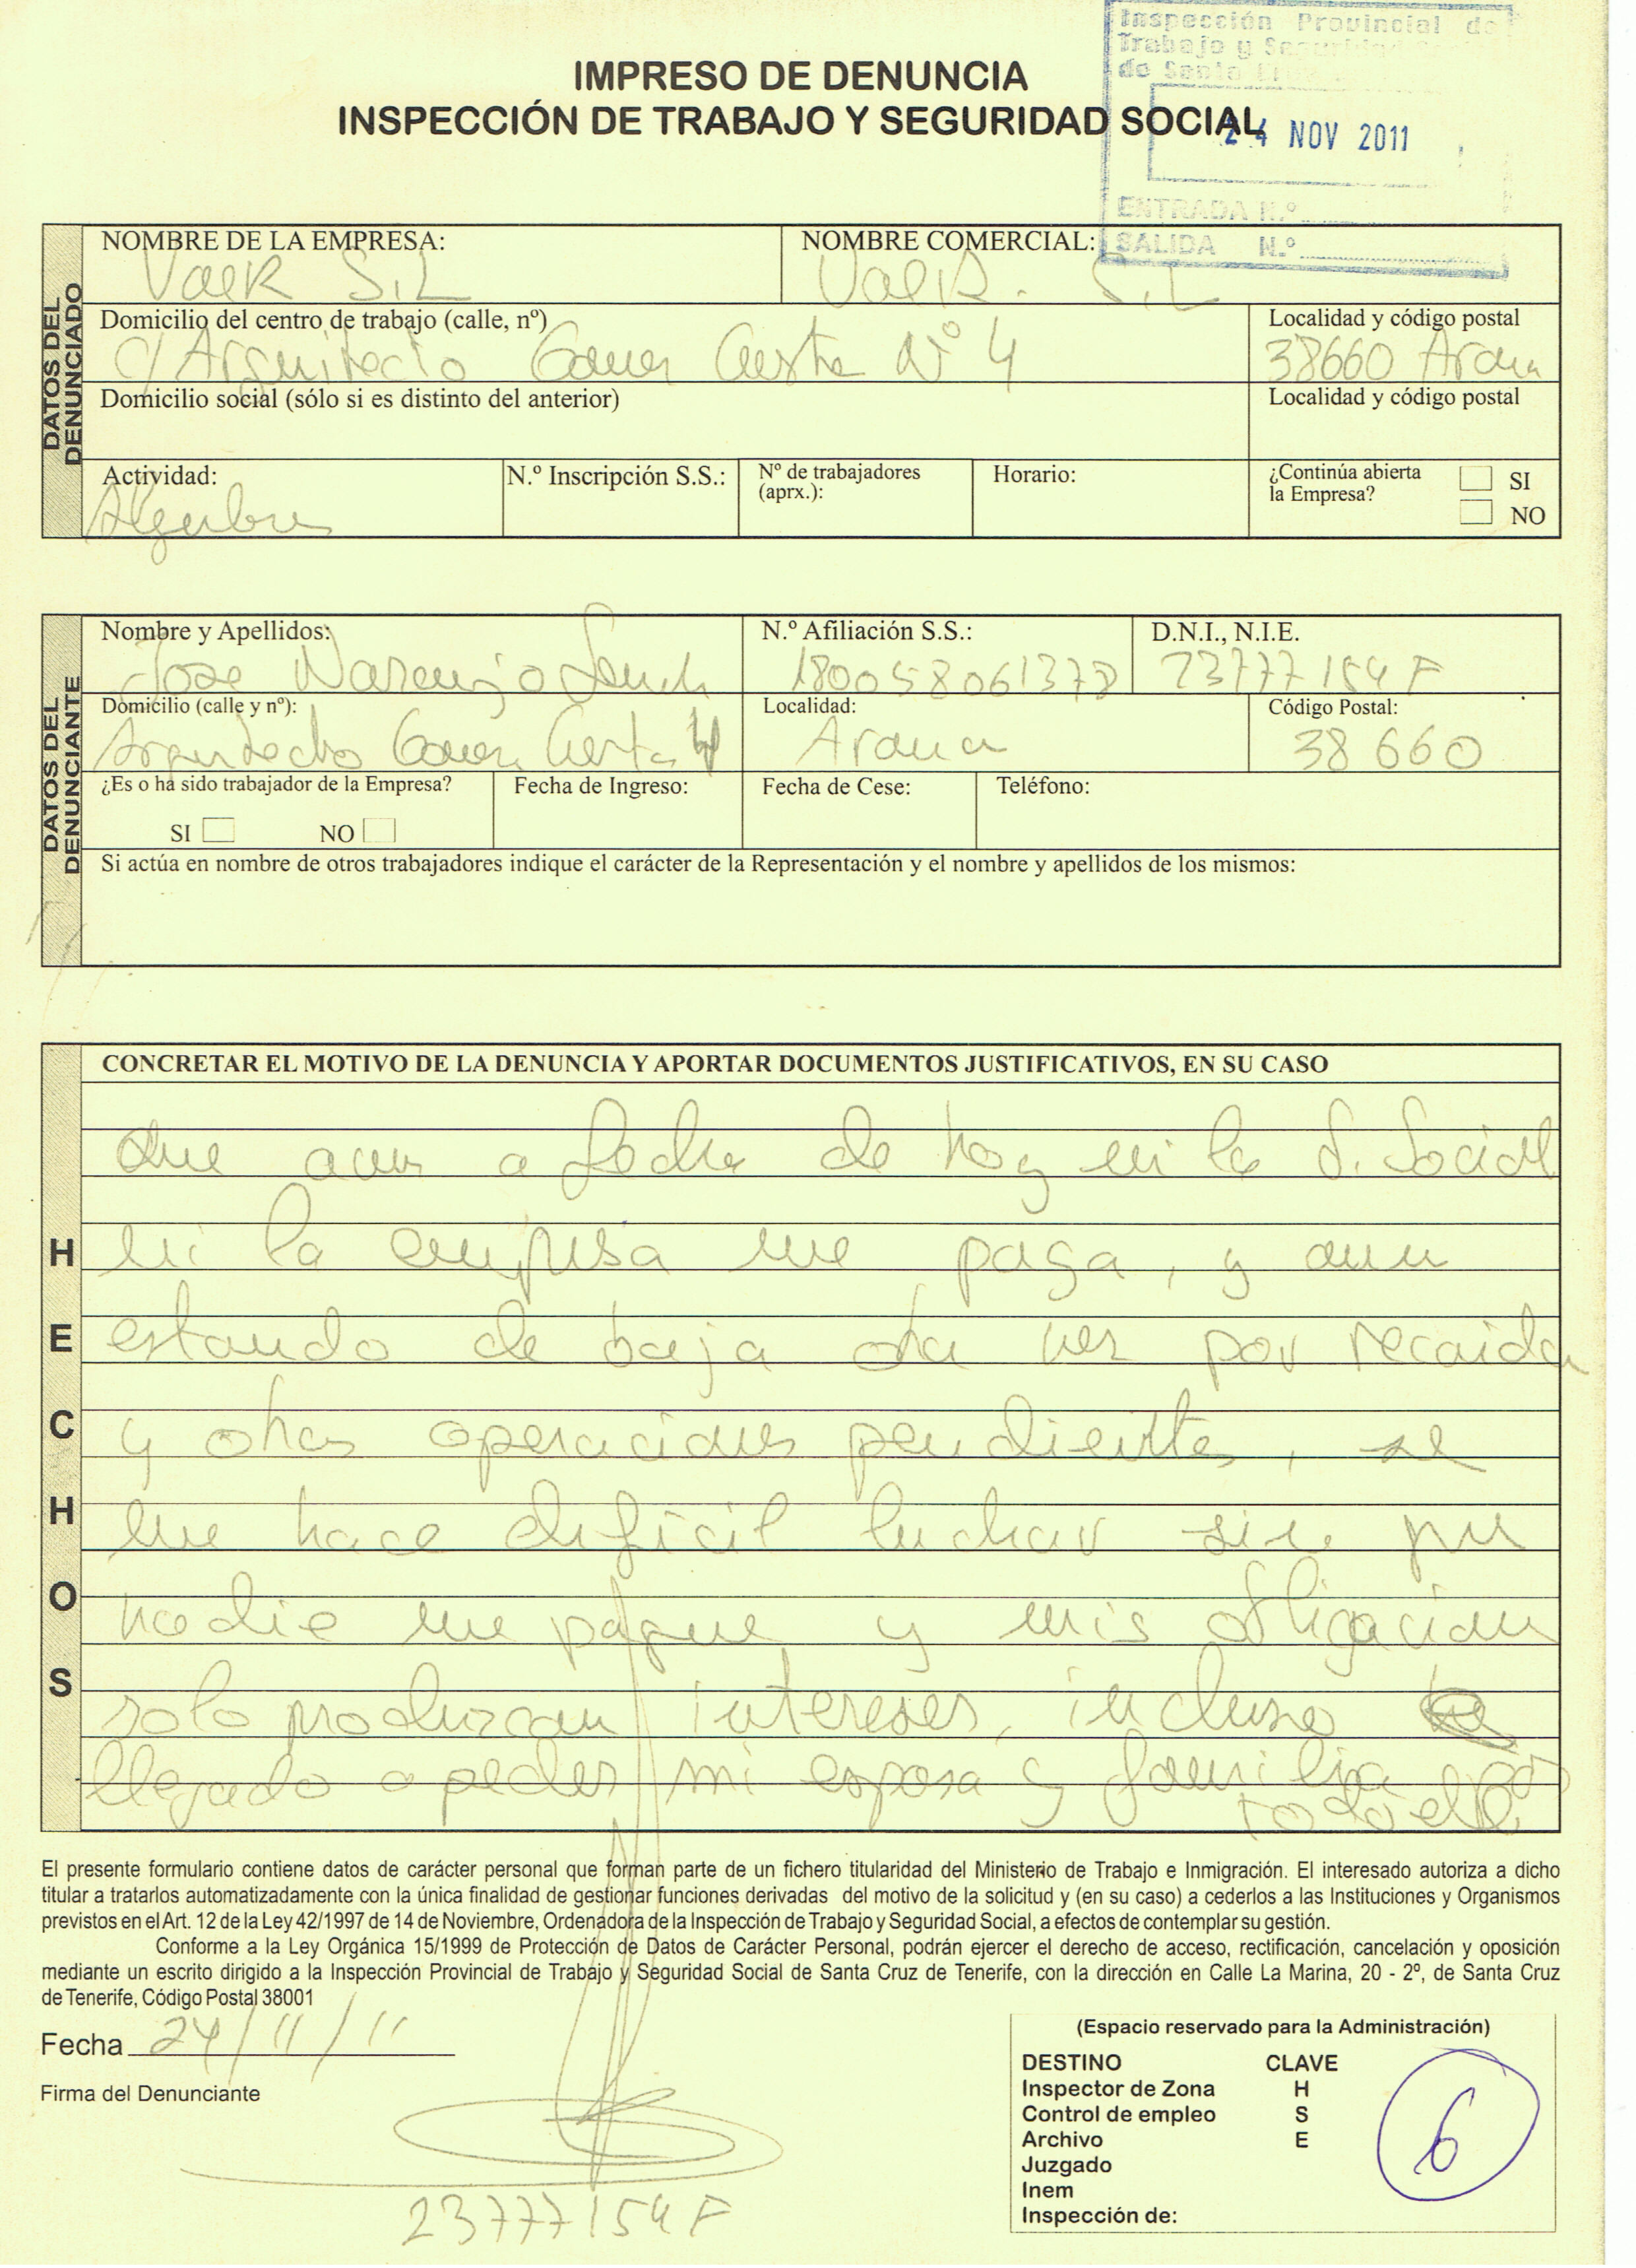 Inspección Provincial de
Trabajo y Seguridad
de Santa Cruz
IMPRESO DE DENUNCIA
INSPECCIÓN DE TRABAJO Y SEGURIDAD SOCIAL
24 NOV 2011
ENTRADA N.º
SALIDA N.º
DATOS DEL DENUNCIADO
NOMBRE DE LA EMPRESA: NOMBRE COMERCIAL:
S.L S.L
Domicilio del centro de trabajo (calle, nº) Localidad y código postal
C/ Arquitecto Nº 4 38660
Domicilio social (sólo si es distinto del anterior) Localidad y código postal
Actividad: N.º Inscripción S.S.: Nº de trabajadores (aprx.): Horario: ¿Continúa abierta la Empresa? SI NO
DATOS DEL DENUNCIANTE
Nombre y Apellidos: N.º Afiliación S.S.: D.N.I., N.I.E.
Jose Naranjo 23777154F
Domicilio (calle y nº): Localidad: Código Postal:
Arquitecto 38660
¿Es o ha sido trabajador de la Empresa? Fecha de Ingreso: Fecha de Cese: Teléfono:
SI NO
Si actúa en nombre de otros trabajadores indique el carácter de la Representación y el nombre y apellidos de los mismos:
HECHOS
CONCRETAR EL MOTIVO DE LA DENUNCIA Y APORTAR DOCUMENTOS JUSTIFICATIVOS, EN SU CASO
Que aun a fecha de hoy ni la S. Social
ni la empresa me paga, y aun
estando de baja otra vez por recaida
y otras operaciones pendientes, se
me hace dificil luchar sin que
nadie me pague y mis obligaciones
solo produzcan intereses, incluso
llegado a perder mi esposa y familia por
todo ello
El presente formulario contiene datos de carácter personal que forman parte de un fichero titularidad del Ministerio de Trabajo e Inmigración. El interesado autoriza a dicho
titular a tratarlos automatizadamente con la única finalidad de gestionar funciones derivadas del motivo de la solicitud y (en su caso) a cederlos a las Instituciones y Organismos
previstos en el Art. 12 de la Ley 42/1997 de 14 de Noviembre, Ordenadora de la Inspección de Trabajo y Seguridad Social, a efectos de contemplar su gestión.
Conforme a la Ley Orgánica 15/1999 de Protección de Datos de Carácter Personal, podrán ejercer el derecho de acceso, rectificación, cancelación y oposición
mediante un escrito dirigido a la Inspección Provincial de Trabajo y Seguridad Social de Santa Cruz de Tenerife, con la dirección en Calle La Marina, 20 - 2º, de Santa Cruz
de Tenerife, Código Postal 38001
Fecha 24/11/11
Firma del Denunciante
23777154F
(Espacio reservado para la Administración)
DESTINO CLAVE
Inspector de Zona H
Control de empleo S
Archivo E
Juzgado
Inem
Inspección de:
6